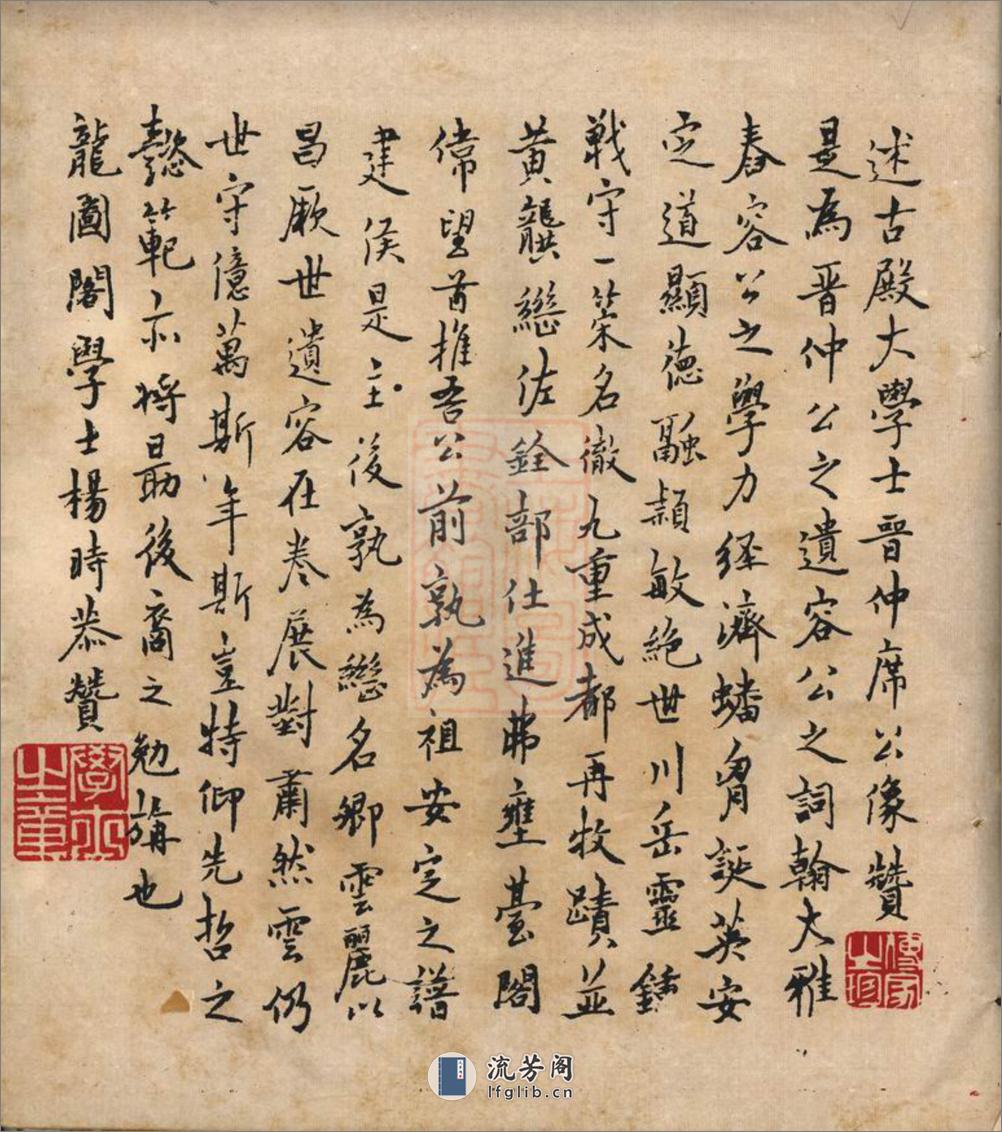 述古殿大學士晉仲席公像贊
是為晋仲公之遺容公之詞翰大雅
春容公之學力經濟蟠胷誕英安
定道顯德融穎敏絶世川岳靈鍾
戰守一策名徹九重成都再牧蹟並
黄龔繼佐銓部仕進弗壅臺閣
偉望首推吾公前孰為祖安定之譜
建侯是主後孰為繼名卿雲麗以
昌厥世遺容在卷展對肅然雲仍
世守億萬斯年斯豈特仰先哲之
懿範亦將日勗後裔之勉旃也
龍圖閣學士楊時恭贊
流芳阁
lfglib.cn